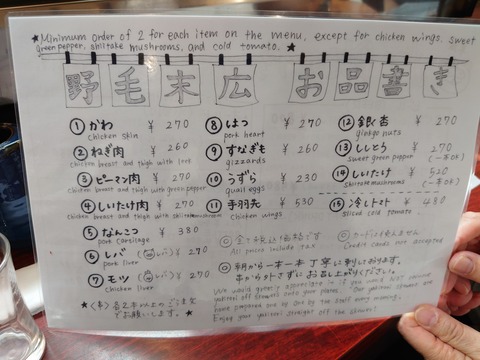 ★Minimum order of 2 for each item on the menu, except for chicken wings, sweet
green pepper, shiitake mushrooms, and cold tomato. ★
野毛末広 お品書き
① かわ ¥ 270
chicken skin
② ねぎ肉 ¥ 260
chicken breast and thigh with leek
③ ピーマン肉 ¥ 270
chicken breast and thigh with green pepper
④ しいたけ肉 ¥ 270
chicken breast and thigh with shiitake mushroom
⑤ なんこつ ¥ 380
pork cartilage
⑥ レバ ¥ 270
pork liver
⑦ モツ ¥ 270
chicken liver
⑧ はつ ¥ 270
pork heart
⑨ すなぎも ¥ 260
gizzards
⑩ うずら ¥ 230
quail eggs
⑪ 手羽先 ¥ 530
chicken wings
⑫ 銀杏 ¥ 270
ginkgo nuts
⑬ ししとう ¥ 270
sweet green pepper (一本OK)
⑭ しいたけ ¥ 520
shiitake mushrooms (一本OK)
⑮ 冷しトマト ¥ 480
sliced cold tomato.
◎ 全て税込価格です
All prices include tax
◎ カードは使えません
Credit cards not accepted
◎ 朝から一本一本丁寧に刺しております。
串から外さずにお召し上がりください。
We would greatly appreciate it if you would not remove
yakitori off skewers onto your plates. Our yakitori skewers are
home prepared one by one by the staff every morning.
Enjoy your yakitori straight off the skewer!
★ 各2本以上のご注文
でお願いします。★